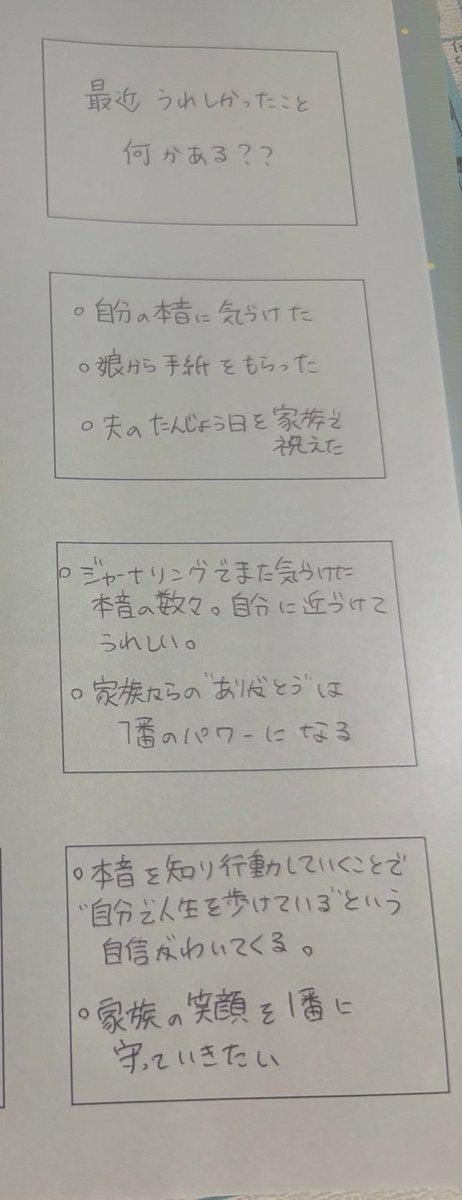 最近 うれしかったこと
何かある??
○ 自分の本音に気づけた
○ 娘から手紙をもらった
○ 夫のたんじょう日を家族で
祝えた
○ ジャーナリングでまた気づけた
本音の数々。自分に近づけて
うれしい。
○ 家族からの"ありがとう"は
1番のパワーになる
○ 本音を知り行動していくことで
"自分で人生を歩けている"という
自信がわいてくる。
○ 家族の笑顔を1番に
守っていきたい